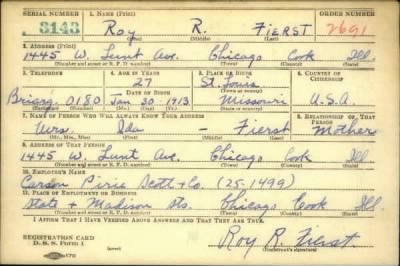 SERIAL NUMBER 1. NAME (Print) ORDER NUMBER
3143 Roy R. Fierst 2691
(First) (Middle) (Last)
2. ADDRESS (Print)
1445 W. Lunt Ave. Chicago Cook Ill.
(Number and street or R. F. D. number) (Town) (County) (State)
3. TELEPHONE 4. AGE IN YEARS 5. PLACE OF BIRTH 6. COUNTRY OF CITIZENSHIP
27 St. Louis
DATE OF BIRTH (Town or county)
Briarg. 0180 Jan 30 - 1913 Missouri U.S.A.
(Exchange) (Number) (Mo.) (Day) (Yr.) (State or country)
7. NAME OF PERSON WHO WILL ALWAYS KNOW YOUR ADDRESS 8. RELATIONSHIP OF THAT PERSON
Mrs. Ida - Fierst Mother
(Mr., Mrs., Miss) (First) (Middle) (Last)
9. ADDRESS OF THAT PERSON
1445 W. Lunt Ave. Chicago Cook Ill
(Number and street or R. F. D. number) (Town) (County) (State)
10. EMPLOYER'S NAME
Carson Pirie Scott & Co. (25-1499)
11. PLACE OF EMPLOYMENT OR BUSINESS
State & Madison Sts. Chicago Cook Ill.
(Number and street or R. F. D. number) (Town) (County) (State)
I AFFIRM THAT I HAVE VERIFIED ABOVE ANSWERS AND THAT THEY ARE TRUE.
REGISTRATION CARD
D. S. S. Form 1
Roy R. Fierst
(Registrant's signature)